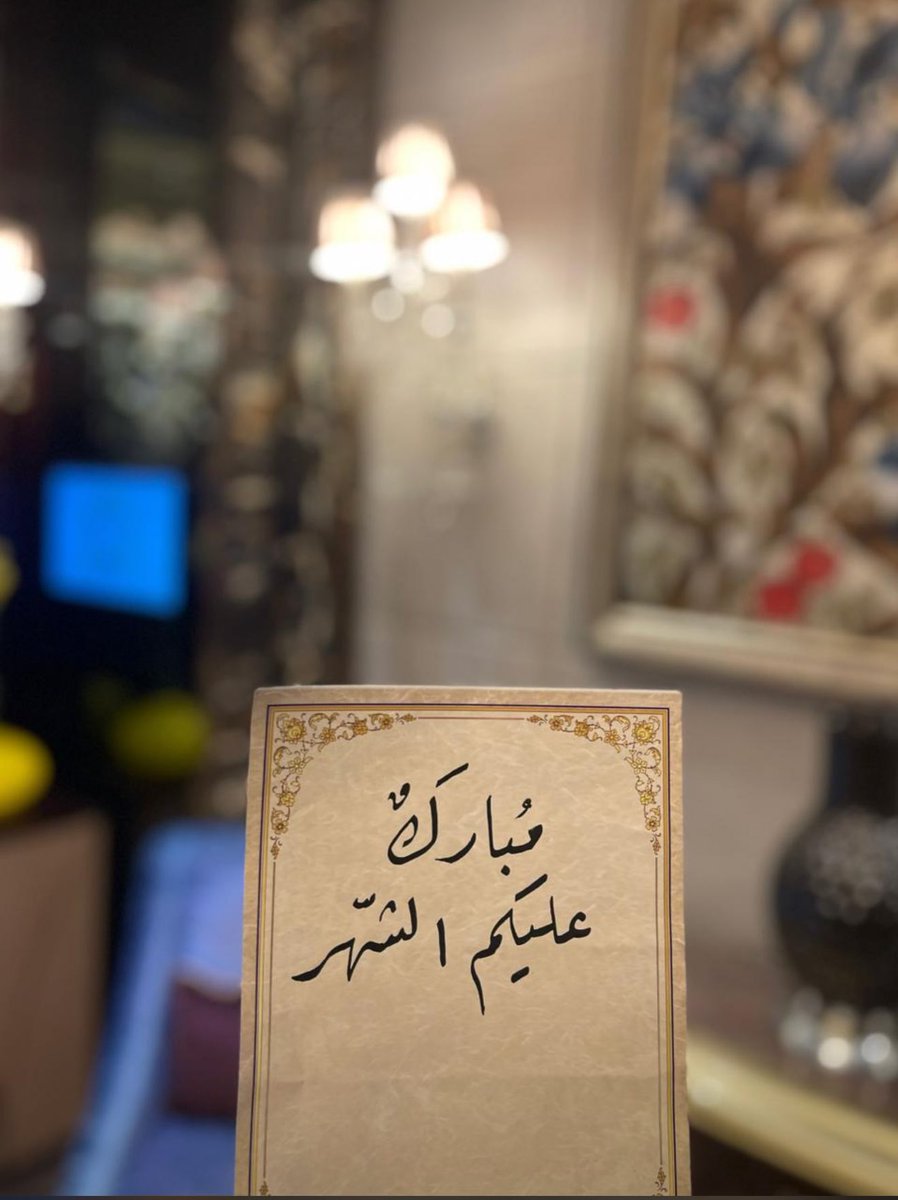 مُباركٌ
عليكم الشّهر